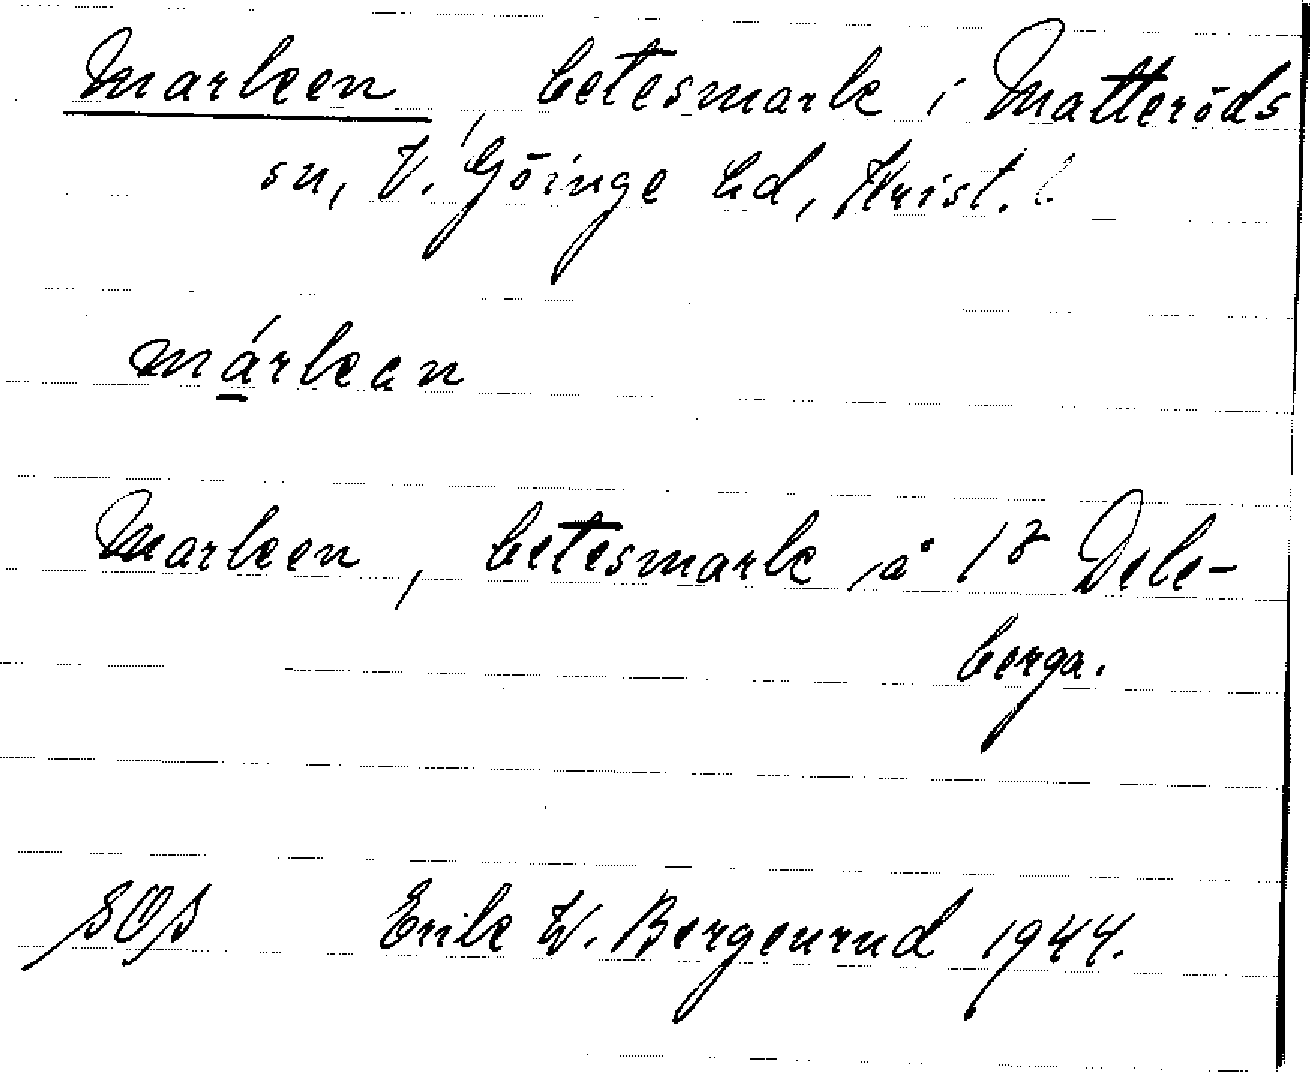 Marken, betesmark i Matteröds
sn, V. Göinge hd, Krist. l
márkan
Marken, betesmark å 18 Dele-
berga.
SOS Erik W. Bergenrud 1944.